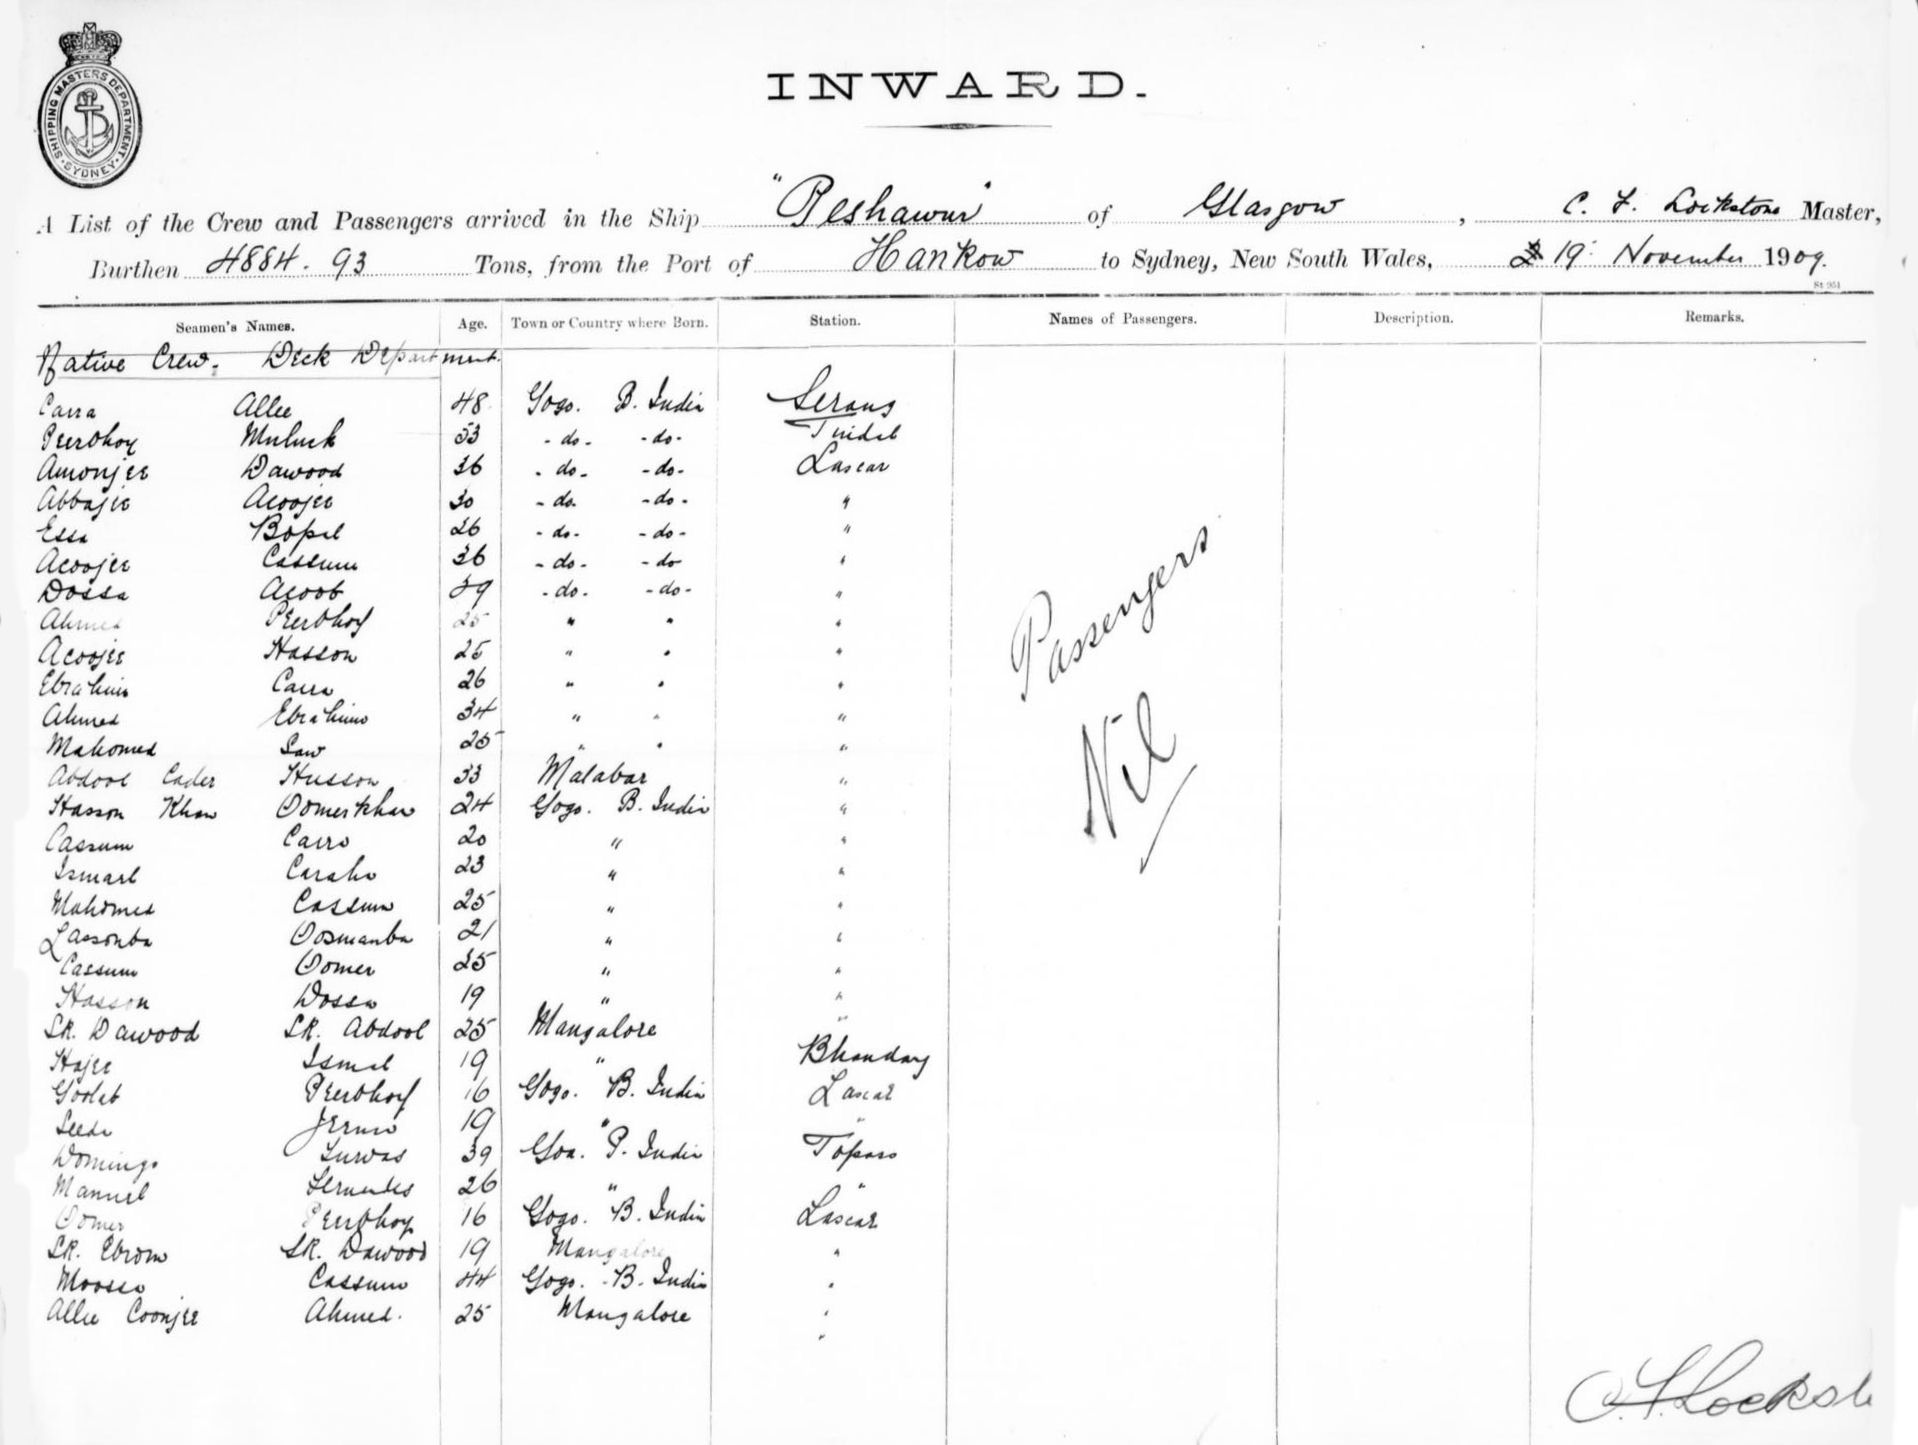 SHIPPING MASTERS DEPARTMENT · SYDNEY ·
INWARD.
A List of the Crew and Passengers arrived in the Ship "Peshawur" of Glasgow, C. F. Lockstone Master,
Burthen 4884.93 Tons, from the Port of Hankow to Sydney, New South Wales, 19 November 1909.
St 951
Seamen's Names. Age. Town or Country where Born. Station. Names of Passengers. Description. Remarks.
Native Crew. Deck Department.
Carra Allee 48 Gogo. B. India Serang
Peerbhoy Muluck 53 - do - - do - Tindal
Amonjee Dawood 36 - do - - do - Lascar
Abbajee Acoojee 30 - do - - do - "
Essa Bopal 26 - do - - do - "
Acoojee Cassum 36 - do - - do "
Dossa Acoob 39 - do - - do - "
Ahmed Peerbhoy 25 " " "
Acoojee Hasson 25 " " "
Ebrahim Carra 26 " " "
Ahmed Ebrahim 34 " " "
Mahomed 25 " " "
Abdool Cader Husson 33 Malabar "
Hasson Khan Oomerkhan 24 Gogo. B. India "
Cassum Carro 20 " "
Ismael 23 " "
Mahomed Cassum 25 " "
Oosmanba 21 " "
Cassum Oomer 25 " "
Hasson Dossa 19 " "
SK. Dawood SK. Abdool 25 Mangalore "
Hajee Ismal 19 " Bhandary
Goolab Peerbhoy 16 Gogo. B. India Lascar
Seedi 19 " "
Domingo 39 Goa. P. India Topass
Manuel 26 " "
Oomer Peerbhoy 16 Gogo. B. India Lascar
SK. Ebrom SK. Dawood 19 Mangalore "
Moossa Cassum 44 Gogo. B. India "
Allee Coonjee Ahmed. 25 Mangalore "
"
Passengers
Nil
C. F. Lockst